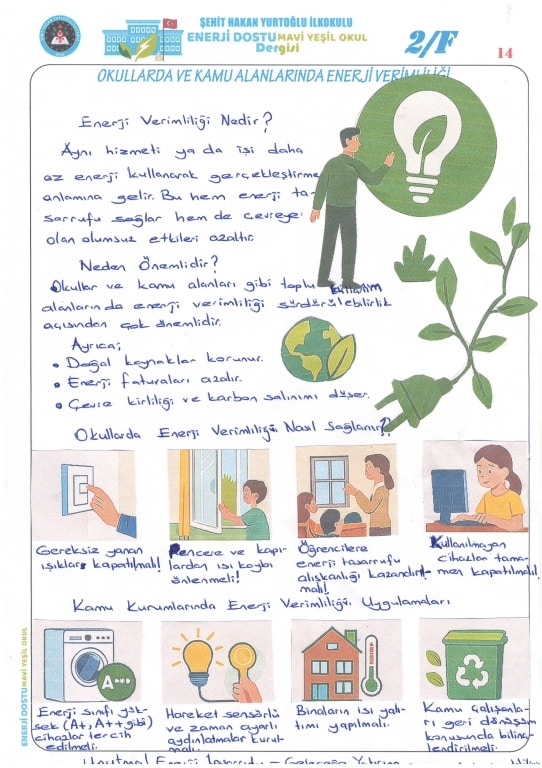 ŞEHİT HAKAN YURTOĞLU İLKOKULU
ENERJİ DOSTU MAVİ YEŞİL OKUL
Dergisi
2/F
14
OKULLARDA VE KAMU ALANLARINDA ENERJİ VERİMLİLİĞİ
Enerji Verimliliği Nedir?
Aynı hizmeti ya da işi daha
az enerji kullanarak gerçekleştirme
anlamına gelir. Bu hem enerji ta-
sarrufu sağlar hem de çevreye
olan olumsuz etkileri azaltır.
Neden Önemlidir?
Okullar ve kamu alanları gibi toplu kullanım
alanlarında enerji verimliliği sürdürülebilirlik
açısından çok önemlidir.
Ayrıca;
• Doğal kaynaklar korunur.
• Enerji faturaları azalır.
• Çevre kirliliği ve karbon salınımı düşer.
Okullarda Enerji Verimliliği Nasıl Sağlanır?
Gereksiz yanan
ışıklar kapatılmalı!
Pencere ve kapı-
lardan ısı kaybı
önlenmeli!
Öğrencilere
enerji tasarrufu
alışkanlığı kazandırıl-
malı!
Kullanılmayan
cihazlar tama-
men kapatılmalı!
Kamu Kurumlarında Enerji Verimliliği Uygulamaları
A++
Enerji sınıfı yük-
sek (A+, A++ gibi)
cihazlar tercih
edilmeli.
Hareket sensörlü
ve zaman ayarlı
aydınlatmalar kurul-
malı.
Binaların ısı yalı-
tımı yapılmalı.
Kamu çalışanla-
rı geri dönüşüm
konusunda bilinç-
lendirilmeli.
ENERJİ DOSTU MAVİ YEŞİL OKUL
Enerji Tasarrufu - Geleceğe Yatırım